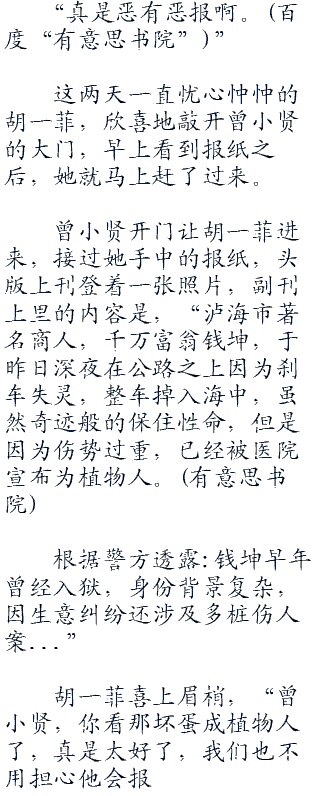 “真是恶有恶报啊。(百
度“有意思书院”)”
这两天一直忧心忡忡的
胡一菲，欣喜地敲开曾小贤
的大门，早上看到报纸之
后，她就马上赶了过来。
曾小贤开门让胡一菲进
来，接过她手中的报纸，头
版上刊登着一张照片，副刊
上里的内容是，“泸海市著
名商人，千万富翁钱坤，于
昨日深夜在公路之上因为刹
车失灵，整车掉入海中，虽
然奇迹般的保住性命，但是
因为伤势过重，已经被医院
宣布为植物人。(有意思书
院)
根据警方透露:钱坤早年
曾经入狱，身份背景复杂，
因生意纠纷还涉及多桩伤人
案...”
胡一菲喜上眉梢，“曾
小贤，你看那坏蛋成植物人
了，真是太好了，我们也不
用担心他会报